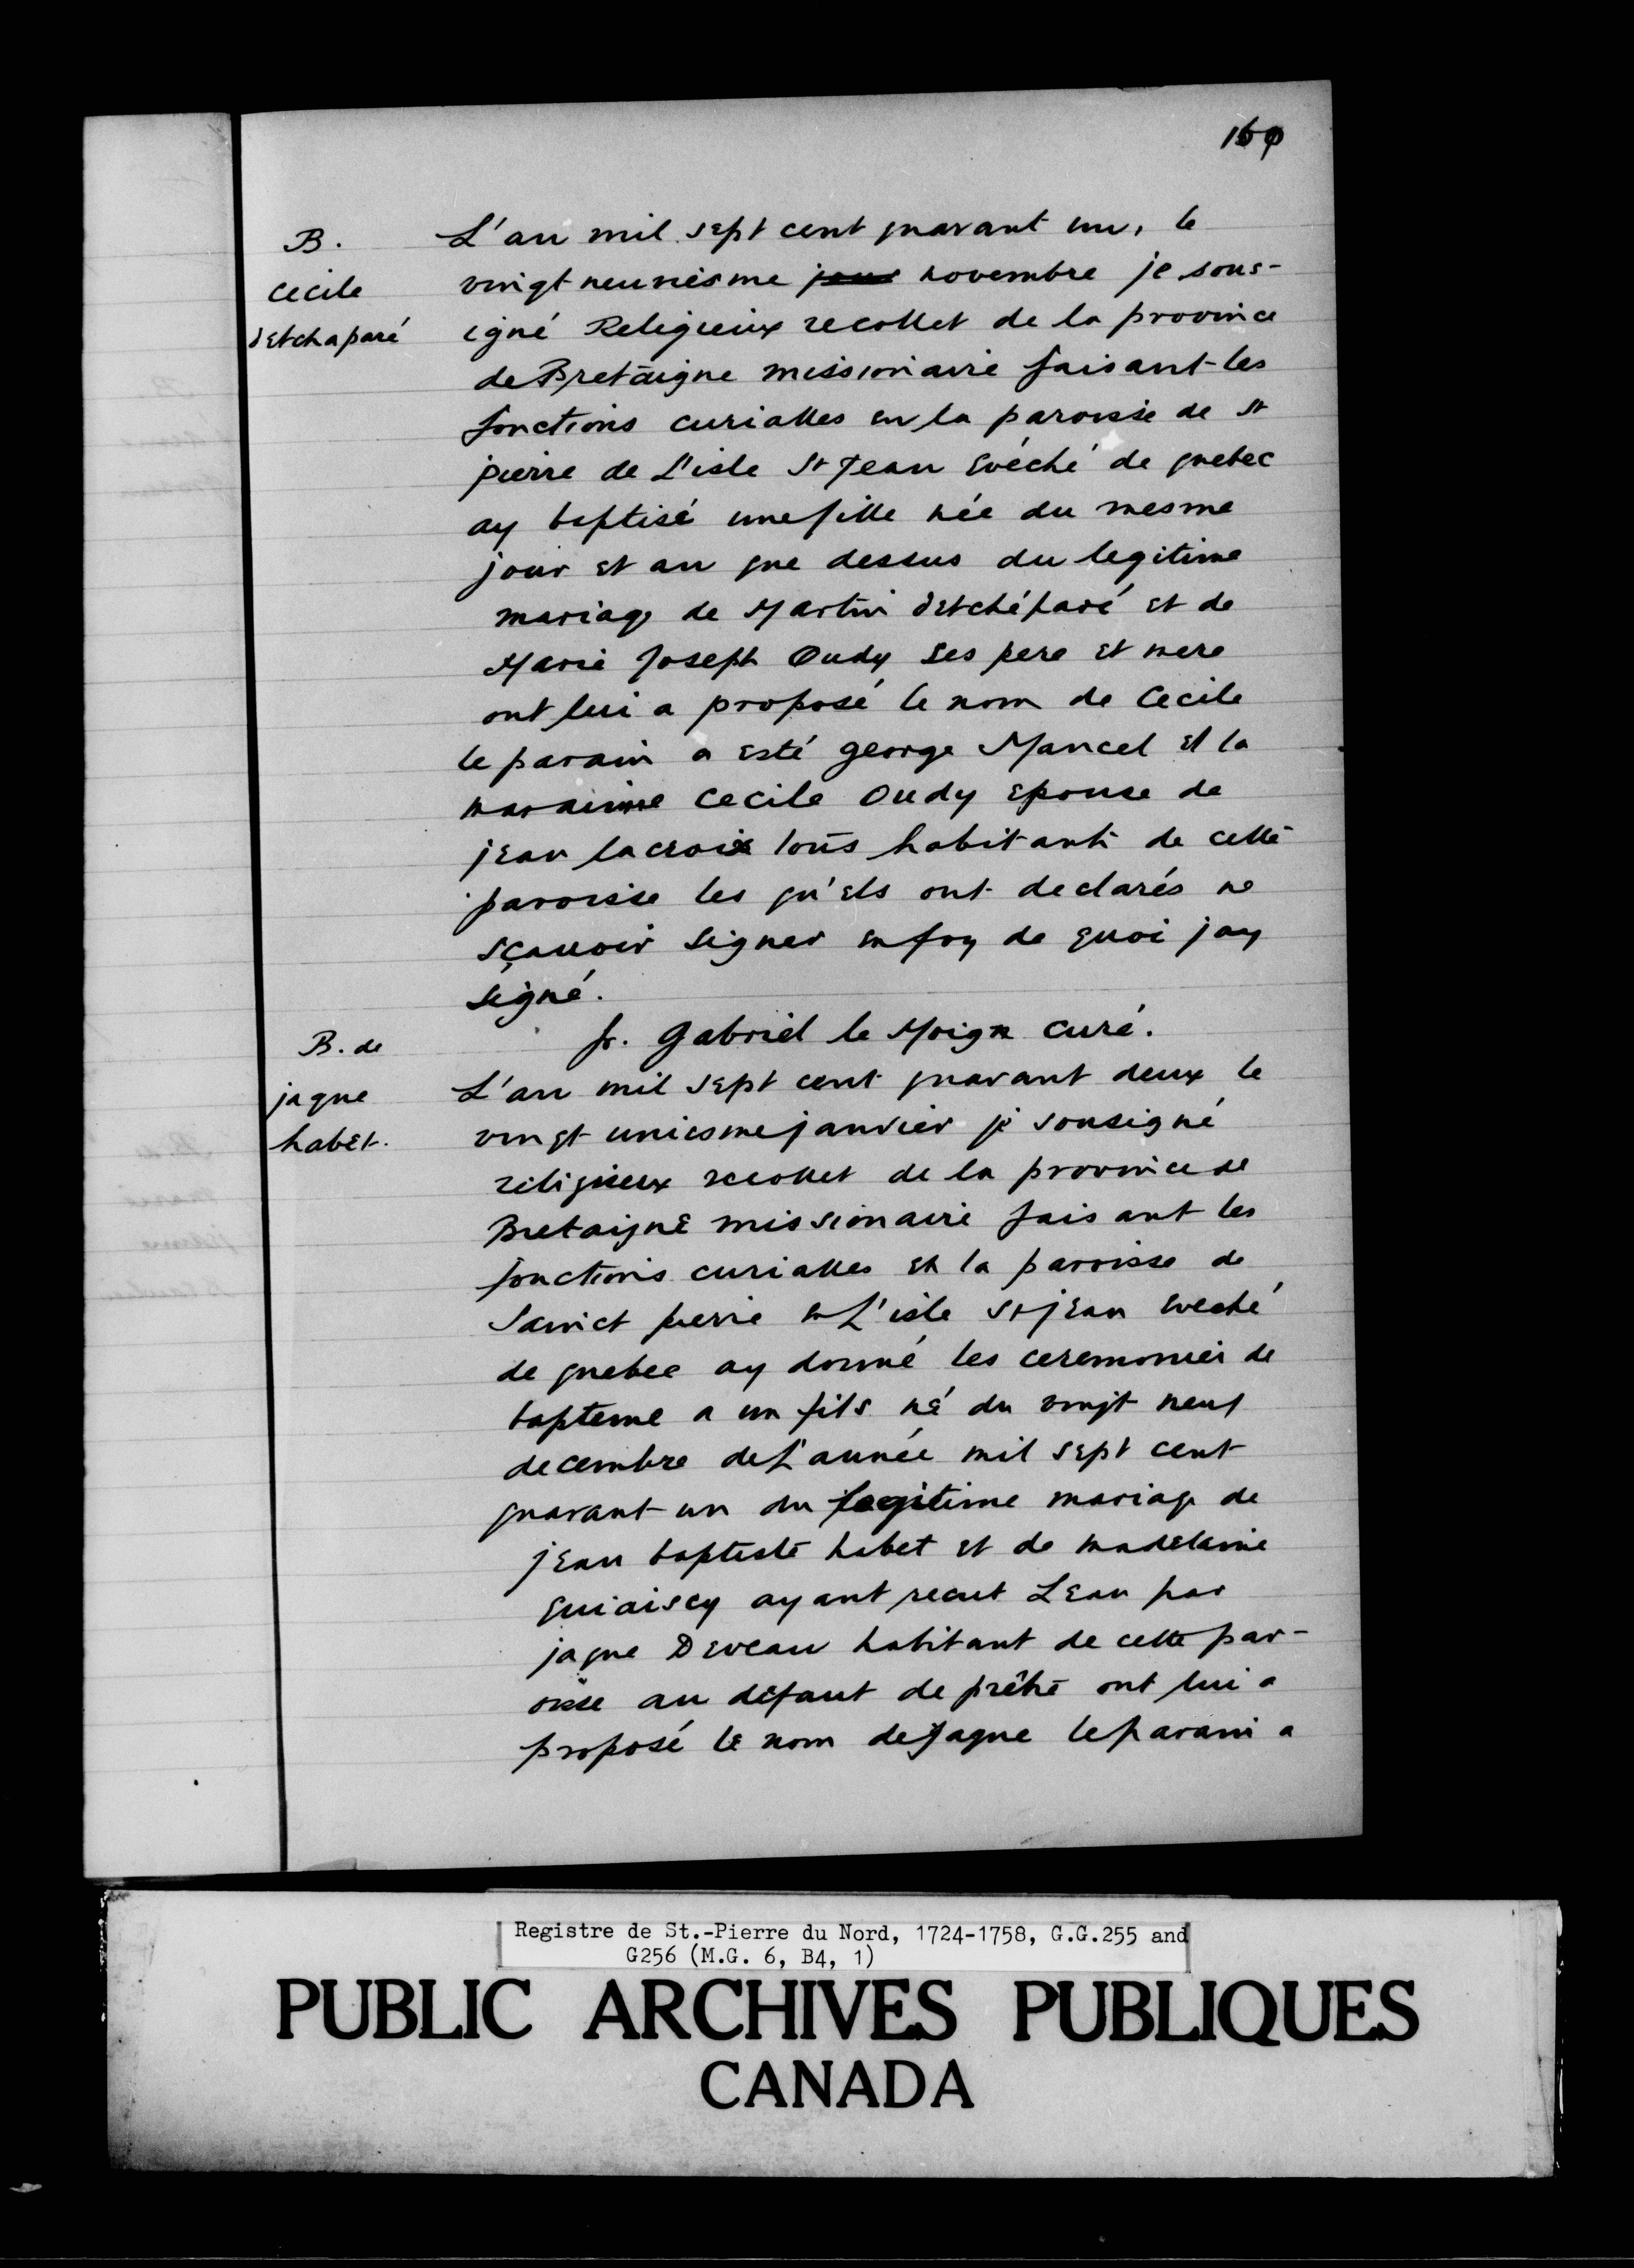 160
B.
cecile
detchaparé
L'an mil sept cent quarant un, le
vingt neuviesme jour novembre je sous-
igné Religieux recollet de la province
de Bretaigne missionaire faisant les
fonctions curialles en la paroisse de St
pierre de L'isle St Jean Evéché de quebec
ay baptisé une fille née du mesme
jour et an que dessus du legitime
mariage de Martin detchéparé et de
Marie Joseph Oudy ses pere et mere
ont lui a proposé le nom de Cecile
le parain a esté george Mancel et la
marainne Cecile Oudy Epouse de
jean lacroix tous habitants de cette
paroisse les qu'els ont declarés ne
sçauoir signer en foy de quoi jay
signé.
fr. Gabriel le Moign curé.
B. de
jaque
habet.
L'an mil sept cent quarant deux le
vingt uniesme janvier je sousigné
religieux recollet de la province de
Bretaigne missionaire faisant les
fonctions curialles en la paroisse de
Sainct pierre en L'isle St jean eveché
de quebec ay donné les ceremonies de
bapteme a un fils né du vingt neuf
decembre de L'année mil sept cent
quarant un du legitime mariage de
jean baptiste habet et de madelaine
quiaiscy ayant recut Leau par
jaque Deveau habitant de cette par-
oisse au défaut de prêtre ont lui a
proposé le nom de Jaque le parain a
Registre de St.-Pierre du Nord, 1724-1758, G.G.255 and
G256 (M.G. 6, B4, 1)
PUBLIC ARCHIVES PUBLIQUES
CANADA